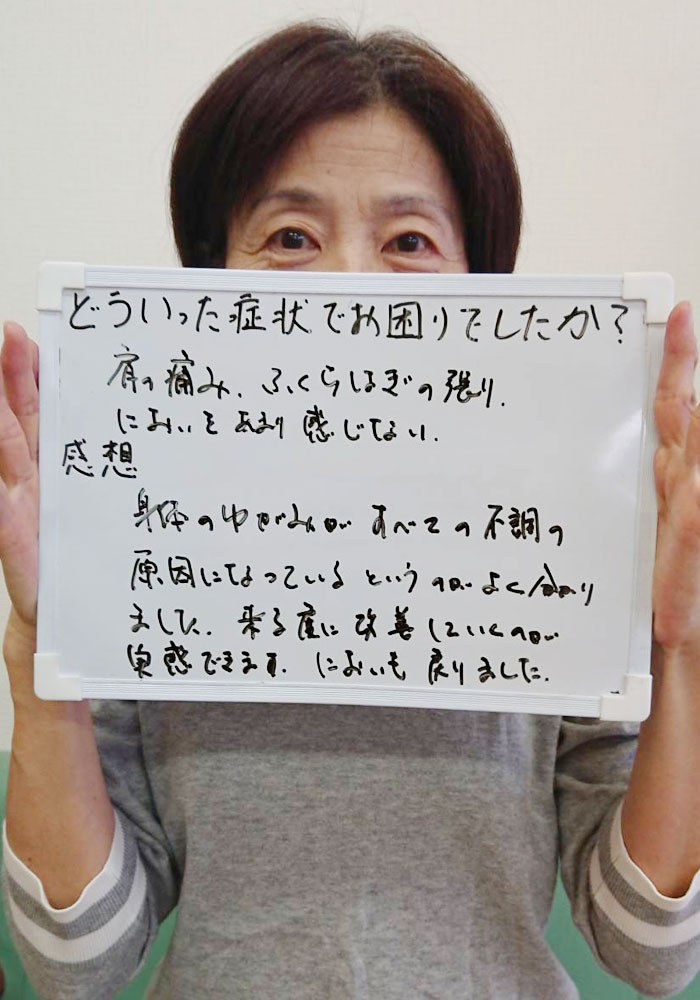 どういった症状でお困りでしたか?
肩の痛み、ふくらはぎの張り、
においをあまり感じない.
感想
身体のゆがみが すべての不調の
原因になっているというのが よく分かり
ました. 来る度に改善していくのが
実感できます. においも戻りました.